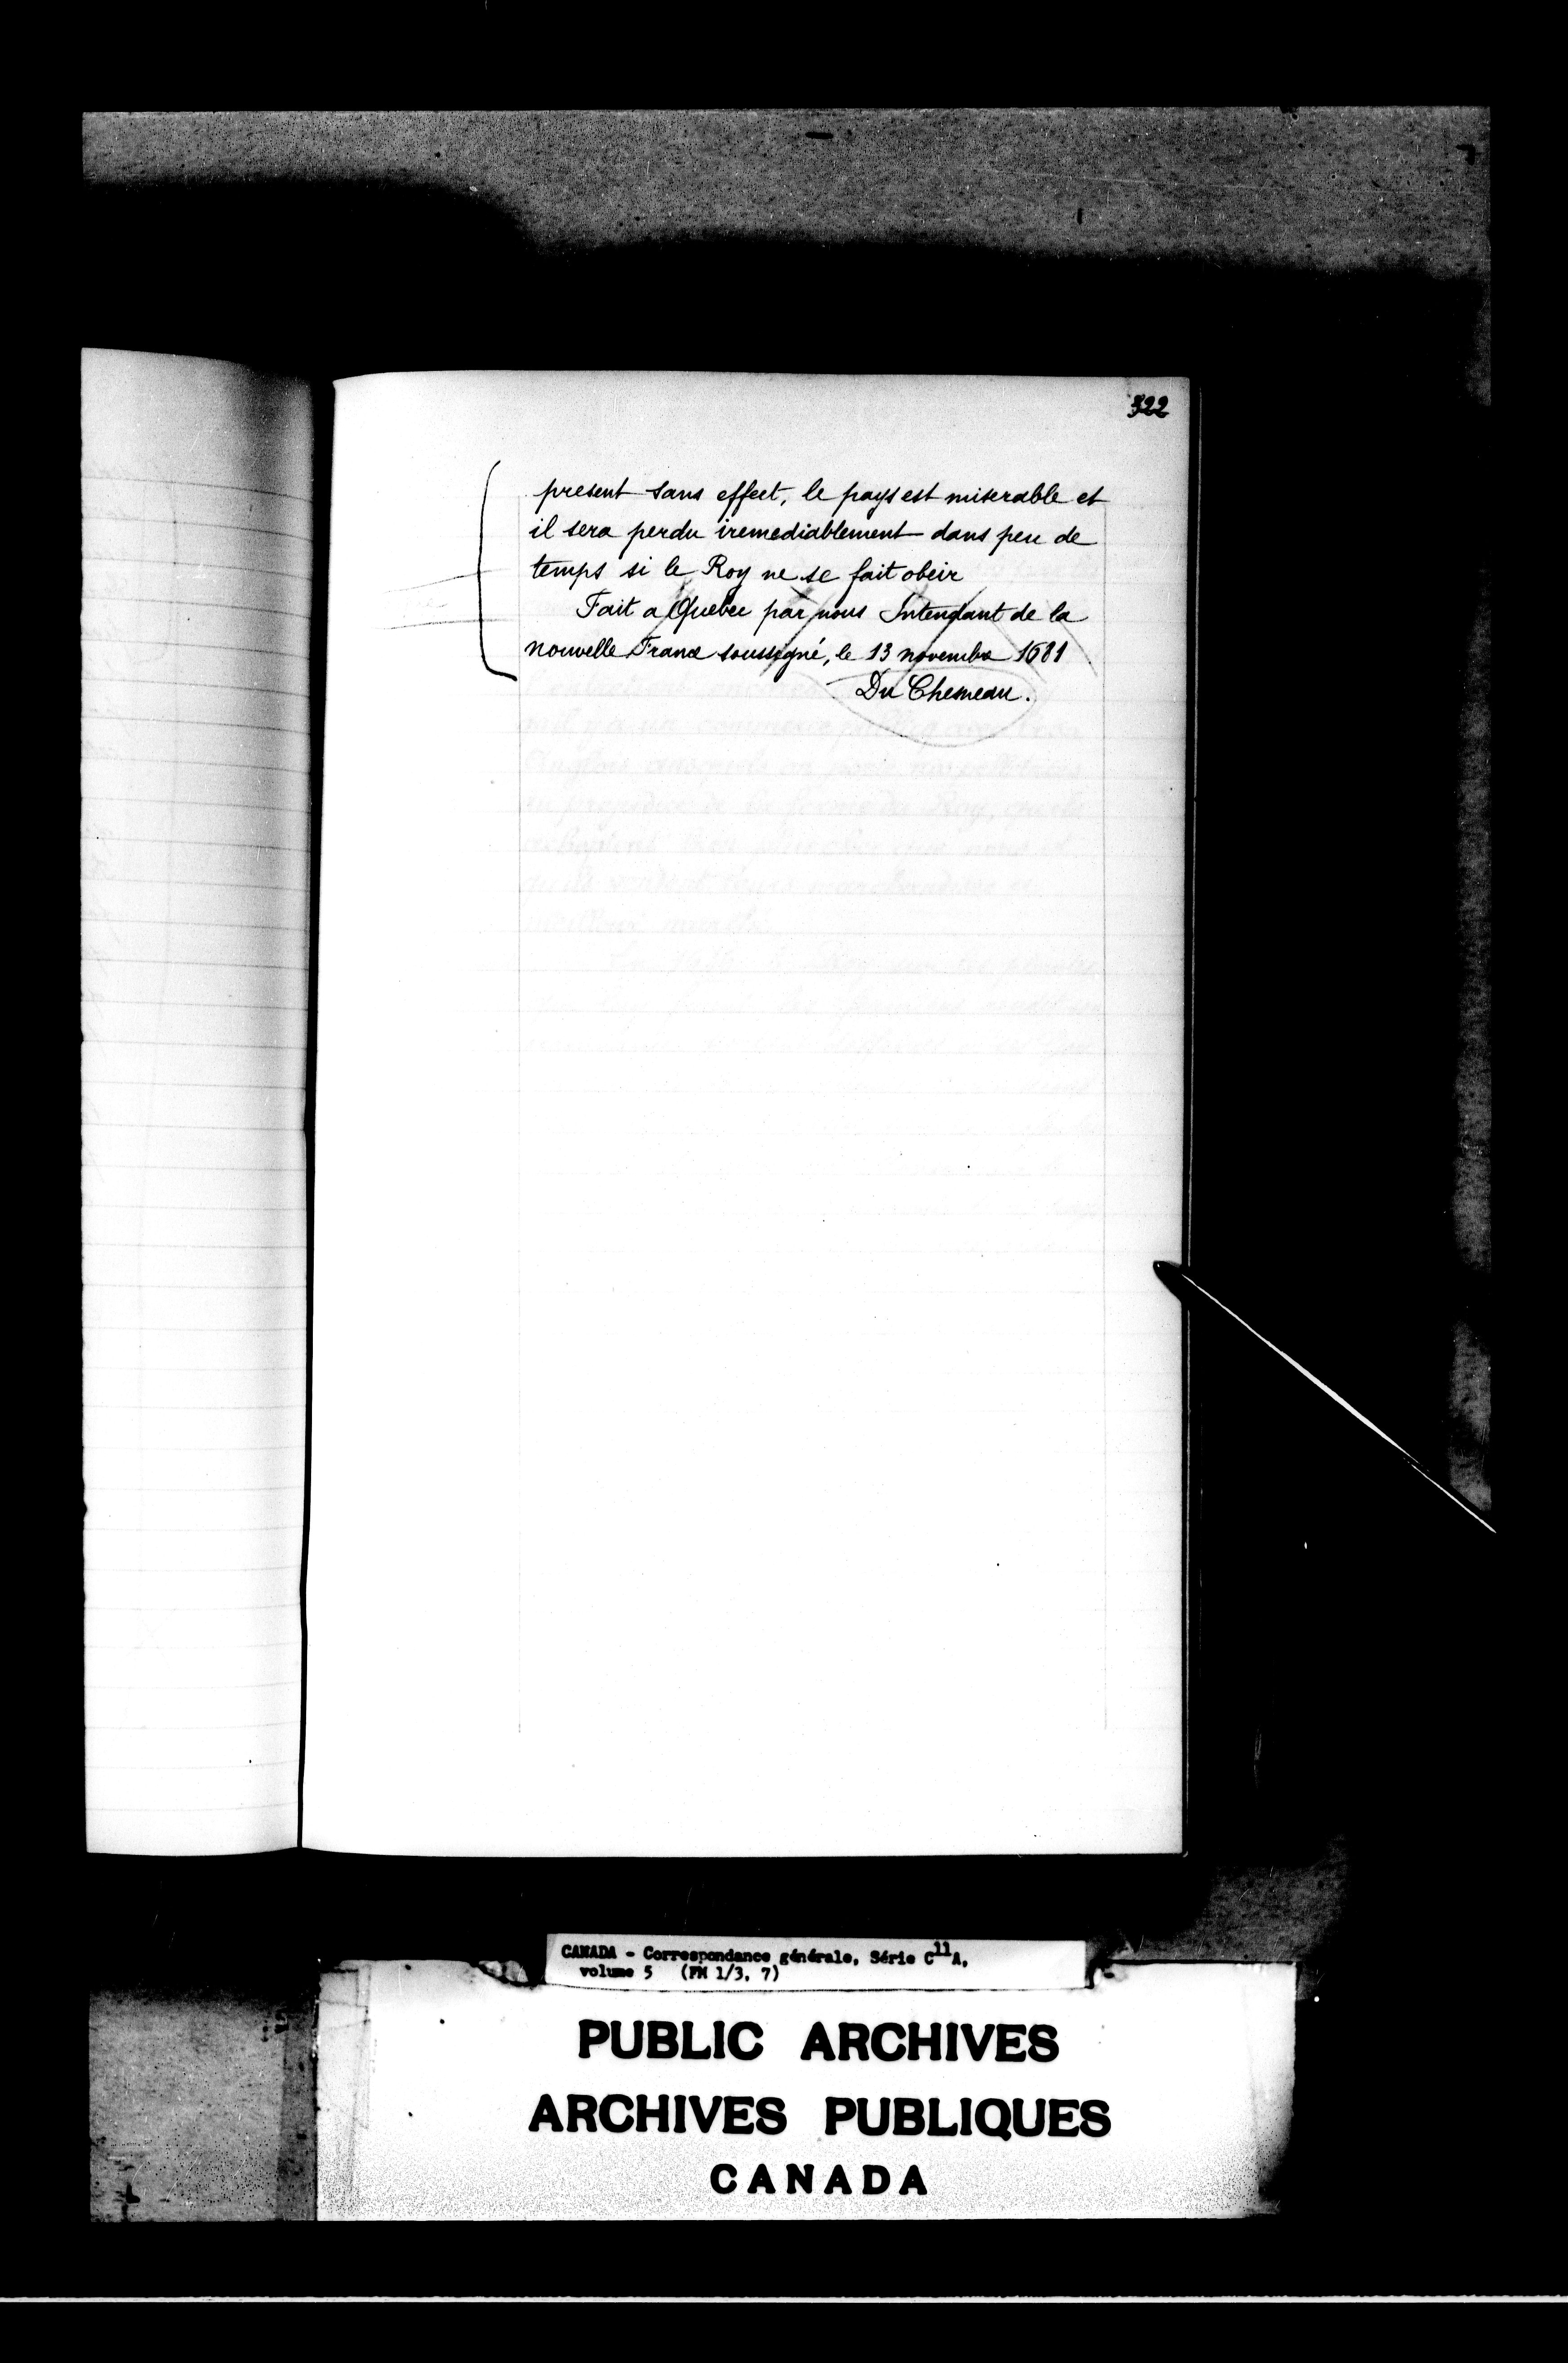 322
present sans effect, le pays est miserable et
il sera perdu iremediablement dans peu de
temps si le Roy ne se fait obeir
Fait a Quebec par nous Intendant de la
nouvelle France soussigné, le 13 novembre 1681
Du Chesneau.
CANADA - Correspondance générale, Série C11A,
volume 5 (FM 1/3, 7)
PUBLIC ARCHIVES
ARCHIVES PUBLIQUES
CANADA